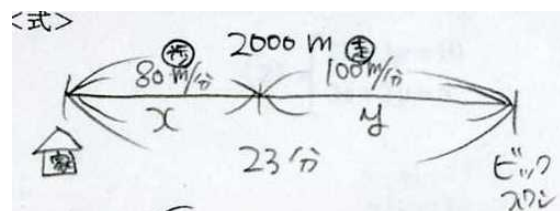 <式>
2000m
歩 走
80m/分 100m/分
x y
23分
家
ビック
スワン